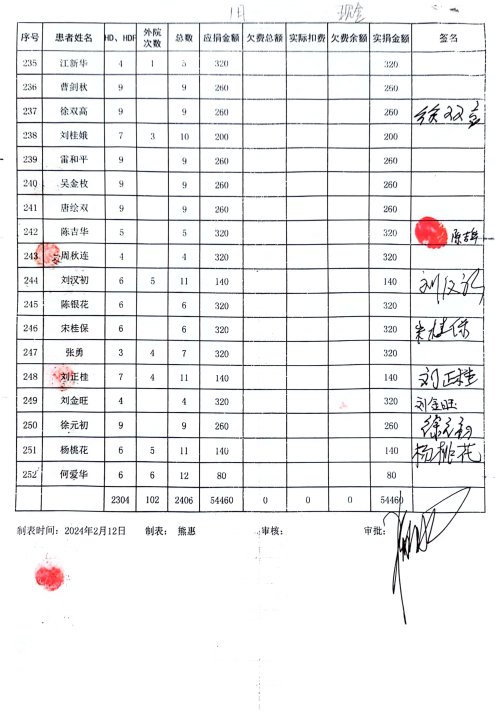 1月 现金
序号 患者姓名 HD、HDF 外院次数 总数 应捐金额 欠费总额 实际扣费 欠费余额 实捐金额 签名
235 江新华 4 1 5 320 320
236 曹剑秋 9 9 260 260
237 徐双高 9 9 260 260 徐双高
238 刘桂娥 7 3 10 200 200
239 雷和平 9 9 260 260
240 吴金枚 9 9 260 260
241 唐绘双 9 9 260 260
242 陈吉华 5 5 320 320 陈吉华
243 周秋连 4 4 320 320
244 刘汉初 6 5 11 140 140 刘汉初
245 陈银花 6 6 320 320
246 宋桂保 6 6 320 320 宋桂保
247 张勇 3 4 7 320 320
248 刘正桂 7 4 11 140 140 刘正桂
249 刘金旺 4 4 320 320 刘金旺
250 徐元初 9 9 260 260 徐元初
251 杨桃花 6 5 11 140 140 杨桃花
252 何爱华 6 6 12 80 80
2304 102 2406 54460 0 0 0 54460
制表时间：2024年2月12日 制表： 熊惠 审核： 审批：